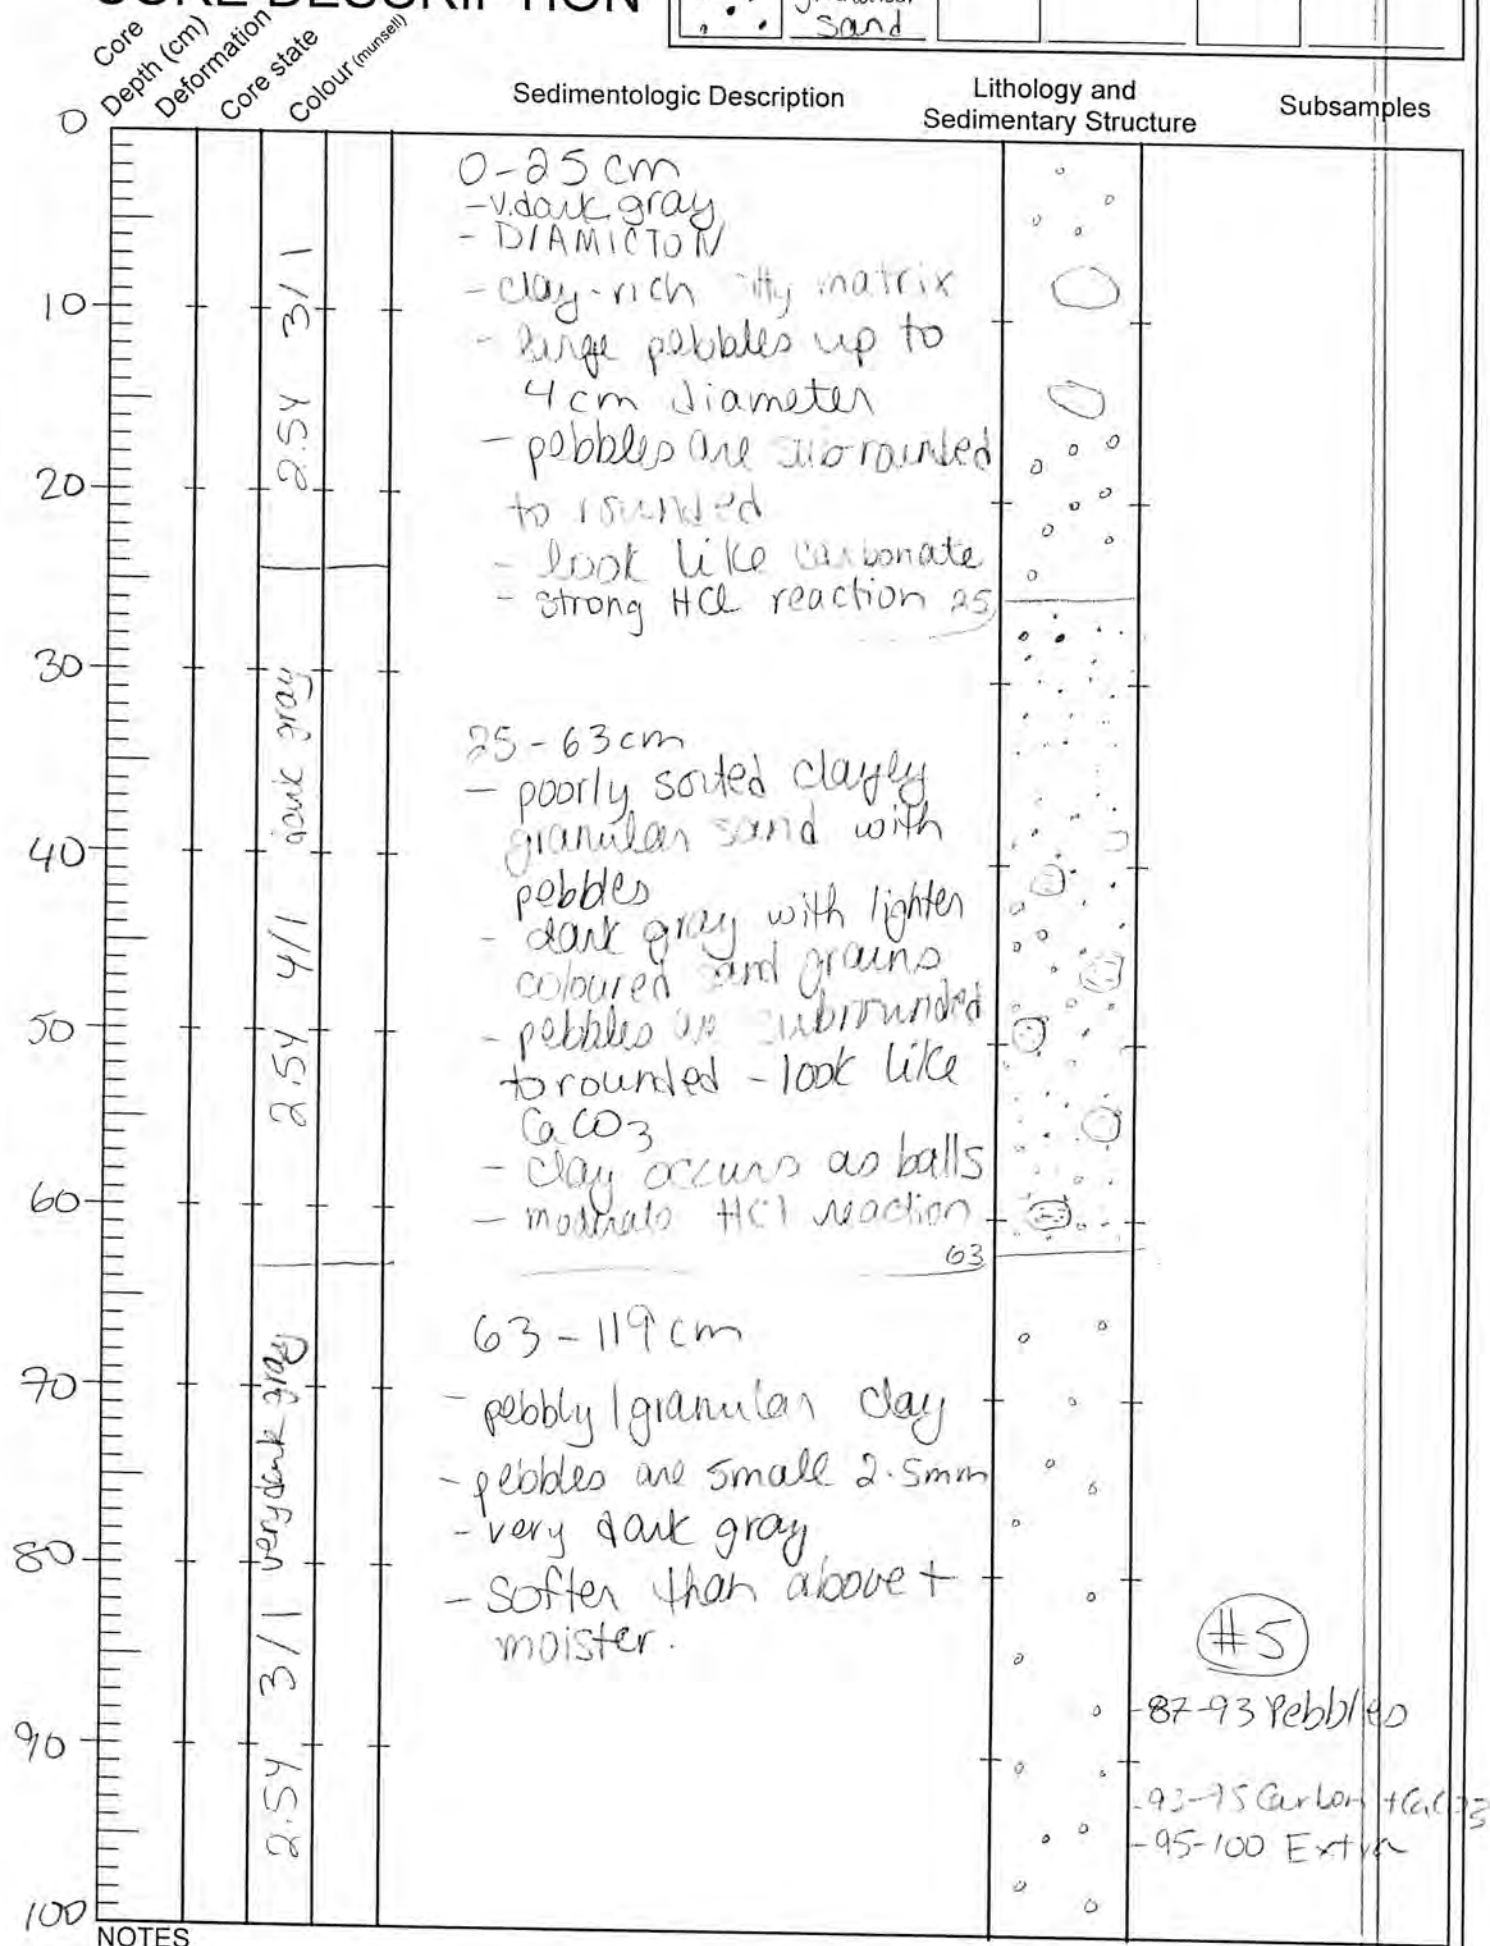 CORE DESCRIPTION
sand
Core
Depth (cm)
Deformation
Core state
Colour (munsell)
Sedimentologic Description
Lithology and
Sedimentary Structure
Subsamples
0
10
20
30
40
50
60
70
80
90
100
2.5Y 3/1
2.5Y 4/1 dark gray
2.5Y 3/1 very dark gray
0-25 cm
-v.dark gray
- DIAMICTON
- clay-rich matrix
- large pebbles up to
4cm diameter
- pebbles are subrounded
to rounded
- look like carbonate
- strong HCl reaction 25
25-63cm
- poorly sorted clayey
granular sand with
pebbles
- dark gray with lighter
coloured sand grains
- pebbles are subrounded
to rounded - look like
CaCO3
- clay occurs as balls
- moderate HCl reaction
63
63-119cm
- pebbly/granular clay
- pebbles are small 2.5mm
- very dark gray
- softer than above +
moister.
#5
-87-93 Pebbles
-93-95 Carbon + CaCO3
-95-100 Extra
NOTES